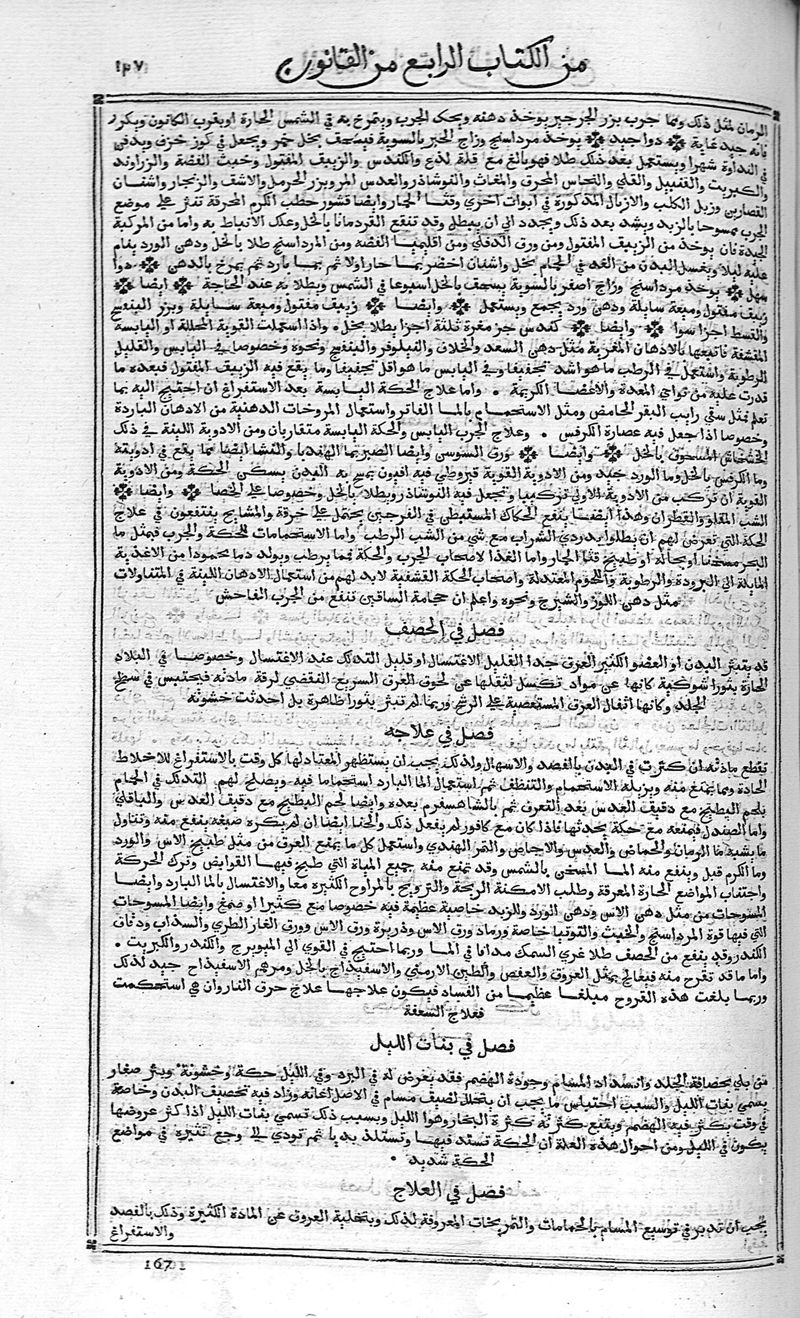 من الكتاب الرابع من القانون
الرمان لمثل ذلك ومما جرب بزر الجرجير يوخذ دهنه ويحك الجرب ويتمرخ به في الشمس الحارة او بقرب الكانون ويكرر
فانه جيد غاية دوا جيد يوخذ مرداسنج وزاج الحبر بالسوية فيسحف بخل خمر ويجعل في كوز خزف ويدفن
في النداوة شهرا ويستعمل بعد ذلك طلا فهو بالغ مع قلة لذع والكندس والزيبق المفتول وخبث الفضة والزراوند
والكبريت والقنبيل والقلي والنحاس المحرق والمغاث والنوشاذر والعدس المر وبزر الحرمل والاشق والزنجار واشنان
القصارين وزبل الكلب والازبال المذكورة في ابواب اخرى وقثا الحمار وايضا قشور حطب الكرم المحرقة تنثر على موضع
الجرب ممسوحا بالزيد ويشد بعد ذلك ويجدد الى ان يبطل وقد تنفع القردمانا بالخل وعلك الانباط به واما من المركبة
الجيدة فان يوخذ من الزيبق المفتول ومن ورق الدفلي ومن اقليميا الفضة ومن المرداسنج طلا بالخل ودهن الورد ينام
عليه ليلا ويغسل البدن من الغد في الحمام بخل واشنان اخضر بما حار اولا ثم بما بارد ثم يمرخ بالدهن دوا
سهل يوخذ مرداسنج وزاج اصفر بالسوية يسحف بالخل اسبوعا في الشمس ويطلا به عند الحاجة ايضا
زيبق مفتول وميعة سايلة ودهن ورد يجمع ويستعمل وايضا زيبق مفتول وميعة سايلة وبزر البنفسج
والقسط اجزا سوا وايضا كندس جز مغرة ثلثة اجزا يطلا بخل واذا استعملت القوية المحللة او اليابسة
المقشفة فاتبعها بالادهان المغرية مثل دهن السعد والخلاف والنيلوفر والبنفسج ونحوه وخصوصا في اليابس والقليل
الرطوبة واستعمل في الرطب ما هو اشد تجفيفا وفي اليابس ما هو اقل تجفيفا وما يقع فيه الزيبق المفتول فبعده ما
قدرت عليه من نواي المعدة والاعضا الكريمة واما علاج الحكة اليابسة بعد الاستفراغ ان احتيج اليه بما
تعلم فمثل سقي رايب البقر الحامض ومثل الاستحمام بالما الفاتر واستعمال المروخات الدهنية من الادهان الباردة
وخصوصا اذا جعل فيه عصارة الكرفس وعلاج الجرب اليابس والحكة اليابسة متقاربان ومن الادوية اللينة في ذلك
الخشخاش المسحوق بالخل وايضا ورق السوسن وايضا الصبر بما الهندبا والنشا ايضا مما يقع في ادويته
وما الكرفس بالخل وما الورد جيد ومن الادوية القوية قيروطي فيه افيون يمسح به البدن يسكن الحكة ومن الادوية
القوية ان تركب من الادوية الاولى تركيبا وتجعل فيه النوشاذر ويطلا بالخل وخصوصا على الخصا وايضا
الشب المقلو والقطران وهذا ايضا ينفع الحكاك المستبطن في الفرجين يحتمل على خرقة والمشايخ ينتفعون في علاج
الحكة التي تعرض لهم ان يطلوا بدردي الشراب مع شي من الشب الرطب واما الاستحمامات للحكة والجرب فبمثل ما
البحر مسخنا او بحاله او طبيخ قثا الحمار واما الغذا لاصحاب الجرب والحكة فمما يرطب ويولد دما محمودا من الاغذية
المايلة الى البرودة والرطوبة واللحوم المعتدلة واصحاب الحكة القشفية لا بد لهم من استعمال الادهان اللينة في المتناولات
مثل دهن اللوز والشيرج ونحوه واعلم ان حجامة الساقين تنفع من الجرب الفاحش
فصل في الحصف
قد يتبثر البدن او العضو الكثير العرق جدا القليل الاغتسال او قليل التدلك عند الاغتسال وخصوصا في البلاد
الحارة بثورا شوكية كانها عن مواد تكسل لثقلها عن لحوق العرق السريع النفضي لرقة مادته فيحتبس في سطح
الجلد وكانها اثفال العرق المستعصية على الرشح وربما لم تبثر بثورا ظاهرة بل احدثت خشونة
فصل في علاجه
تقطع مادته ان كثرت في البدن بالفصد والاسهال ولذلك يجب ان يستظهر المعتاد لها كل وقت بالاستفراغ للاخلاط
الحادة ومما يمنع منه ويزيله الاستحمام والتنظف ثم استعمال الما البارد استحماما فيه ويصلح لهم التدلك في الحمام
بلحم البطيخ مع دقيق العدس بعد التعرق ثم بالشاهسفرم بعده وايضا لحم البطيخ مع دقيق العدس والباقلي
واما الصندل فيمنعه مع حكة يحدثها فاذا كان مع كافور لم يفعل ذلك والحنا ايضا ان لم يكره صبغه ينفع منه وتناول
ما يشبه ما الرمان والحماض والعدس والاجاص والتمر الهندي واستعمل كل ما يمنع العرق من مثل طبيخ الاس والورد
وما الكرم قبل وينفع منه الما المسخن بالشمس وقد تمنع منه جميع المياة التي طبخ فيها القوابض وترك الحركة
واجتناب المواضع الحارة المعرقة وطلب الامكنة الريحة والترويح بالمراوح الكثيرة معا والاغتسال بالما البارد وايضا
المسوحات من مثل دهن الاس ودهن الورد والزبد خاصية عظيمة فيه خصوصا مع كثيرا او صمغ وايضا المسوحات
التي فيها قوة المرداسنج والخبث والتوتيا خاصة ورماد ورق الاس وذريرة ورق الاس وورق الغار الطري والسذاب ودخان
الكندر وقد ينفع من الحصف طلا غري السمك مدافا في الما وربما احتيج في القوي الى الميويزج والكندر والكبريت
واما ما قد تقرح منه فيعالج بمثل العروق والعفص والطين الارمني والاسفيذاج بالخل ومرهم الاسفيذاج جيد لذلك
وربما بلغت هذه القروح مبلغا عظيما من الفساد فيكون علاجها علاج حرق النار وان هي استحكمت
فعلاج السعفة
فصل في بنات الليل
من بلي بحصافة الجلد وانسداد المسام وجودة الهضم فقد يعرض له في البرد وفي الليل حكة وخشونة وبثر صغار
يسمى بنات الليل والسبب احتباس ما يجب ان يتحلل لضيق مسام في الاصل اعانه وزاد فيه تحصيف البدن وخاصة
في وقت يكثر فيه الهضم ويتبع كثرته كثرة البخار وهوا الليل وبسبب ذلك تسمى بنات الليل اذا كثر عروضها
يكون في الليل ومن احوال هذه العلة ان الحكة تستد فيها وتستلذ بديا ثم تودي الى وجع تثيره في مواضع
الحكة شديد
فصل في العلاج
يجب ان تدبر في توسيع المسام بالحمامات والتمريخات المعروفة لذلك وبتخلية العروق عن المادة الكثيرة وذلك بالفصد
والاستفراغ
167